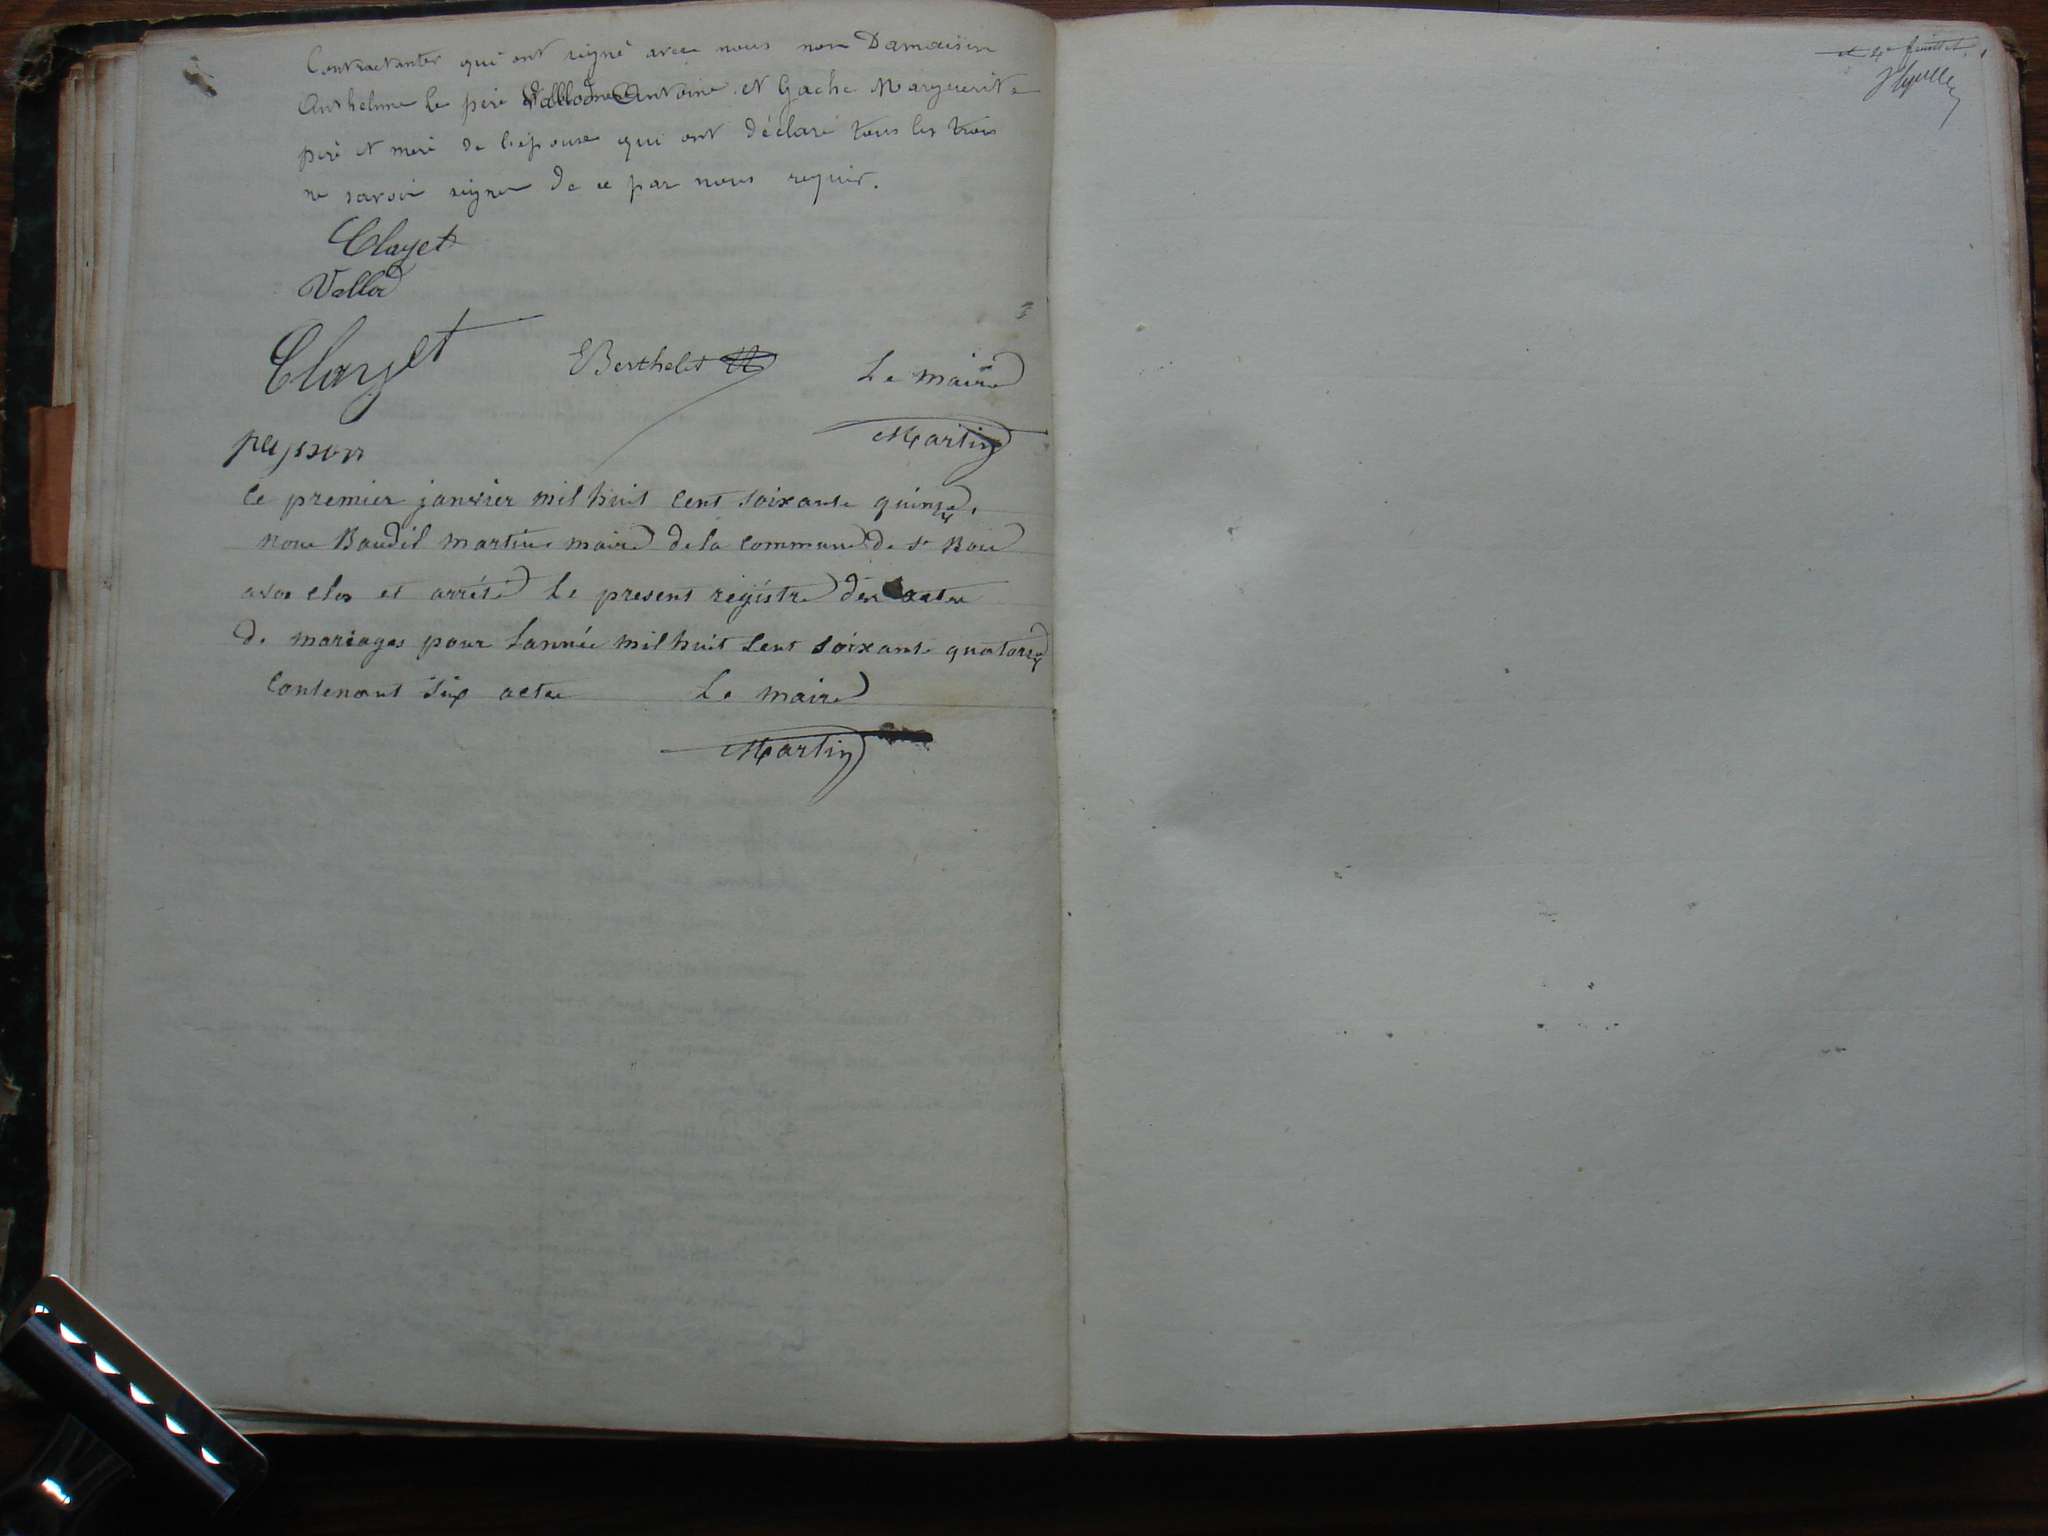 Contractantes qui ont signé avec nous non Damaisin
Anthelme le père Vallod Antoine et Gache Marguerite
père et mère de l'épouse qui ont déclaré tous les trois
ne savoir signer de ce par nous requis.
Clayet
Vallod
Clayet
Berthelet
Le maire
Martin
peysson
Le premier janvier mil huit cent soixante quinze,
nous Baudil martin maire de la commune de St Bau
avon clos et arrété Le present régistre des actes
de mariages pour Lannée mil huit Cent soixante quatorze
Contenant Six actes Le maire
Martin
et 4e feuillet.